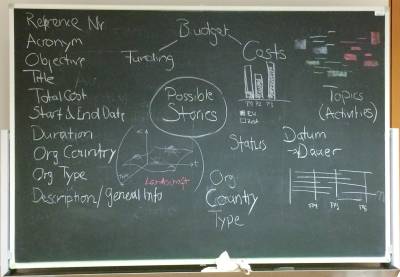 Reference Nr
Acronym
Objective
Title
Total Cost
Start & End Date
Duration
Org Country
Org Type
Description/general Info
Budget
Funding
Costs
Possible
Stories
Landschaft
Status
Org
Country
Type
Topics
(Activities)
Datum
→Dauer